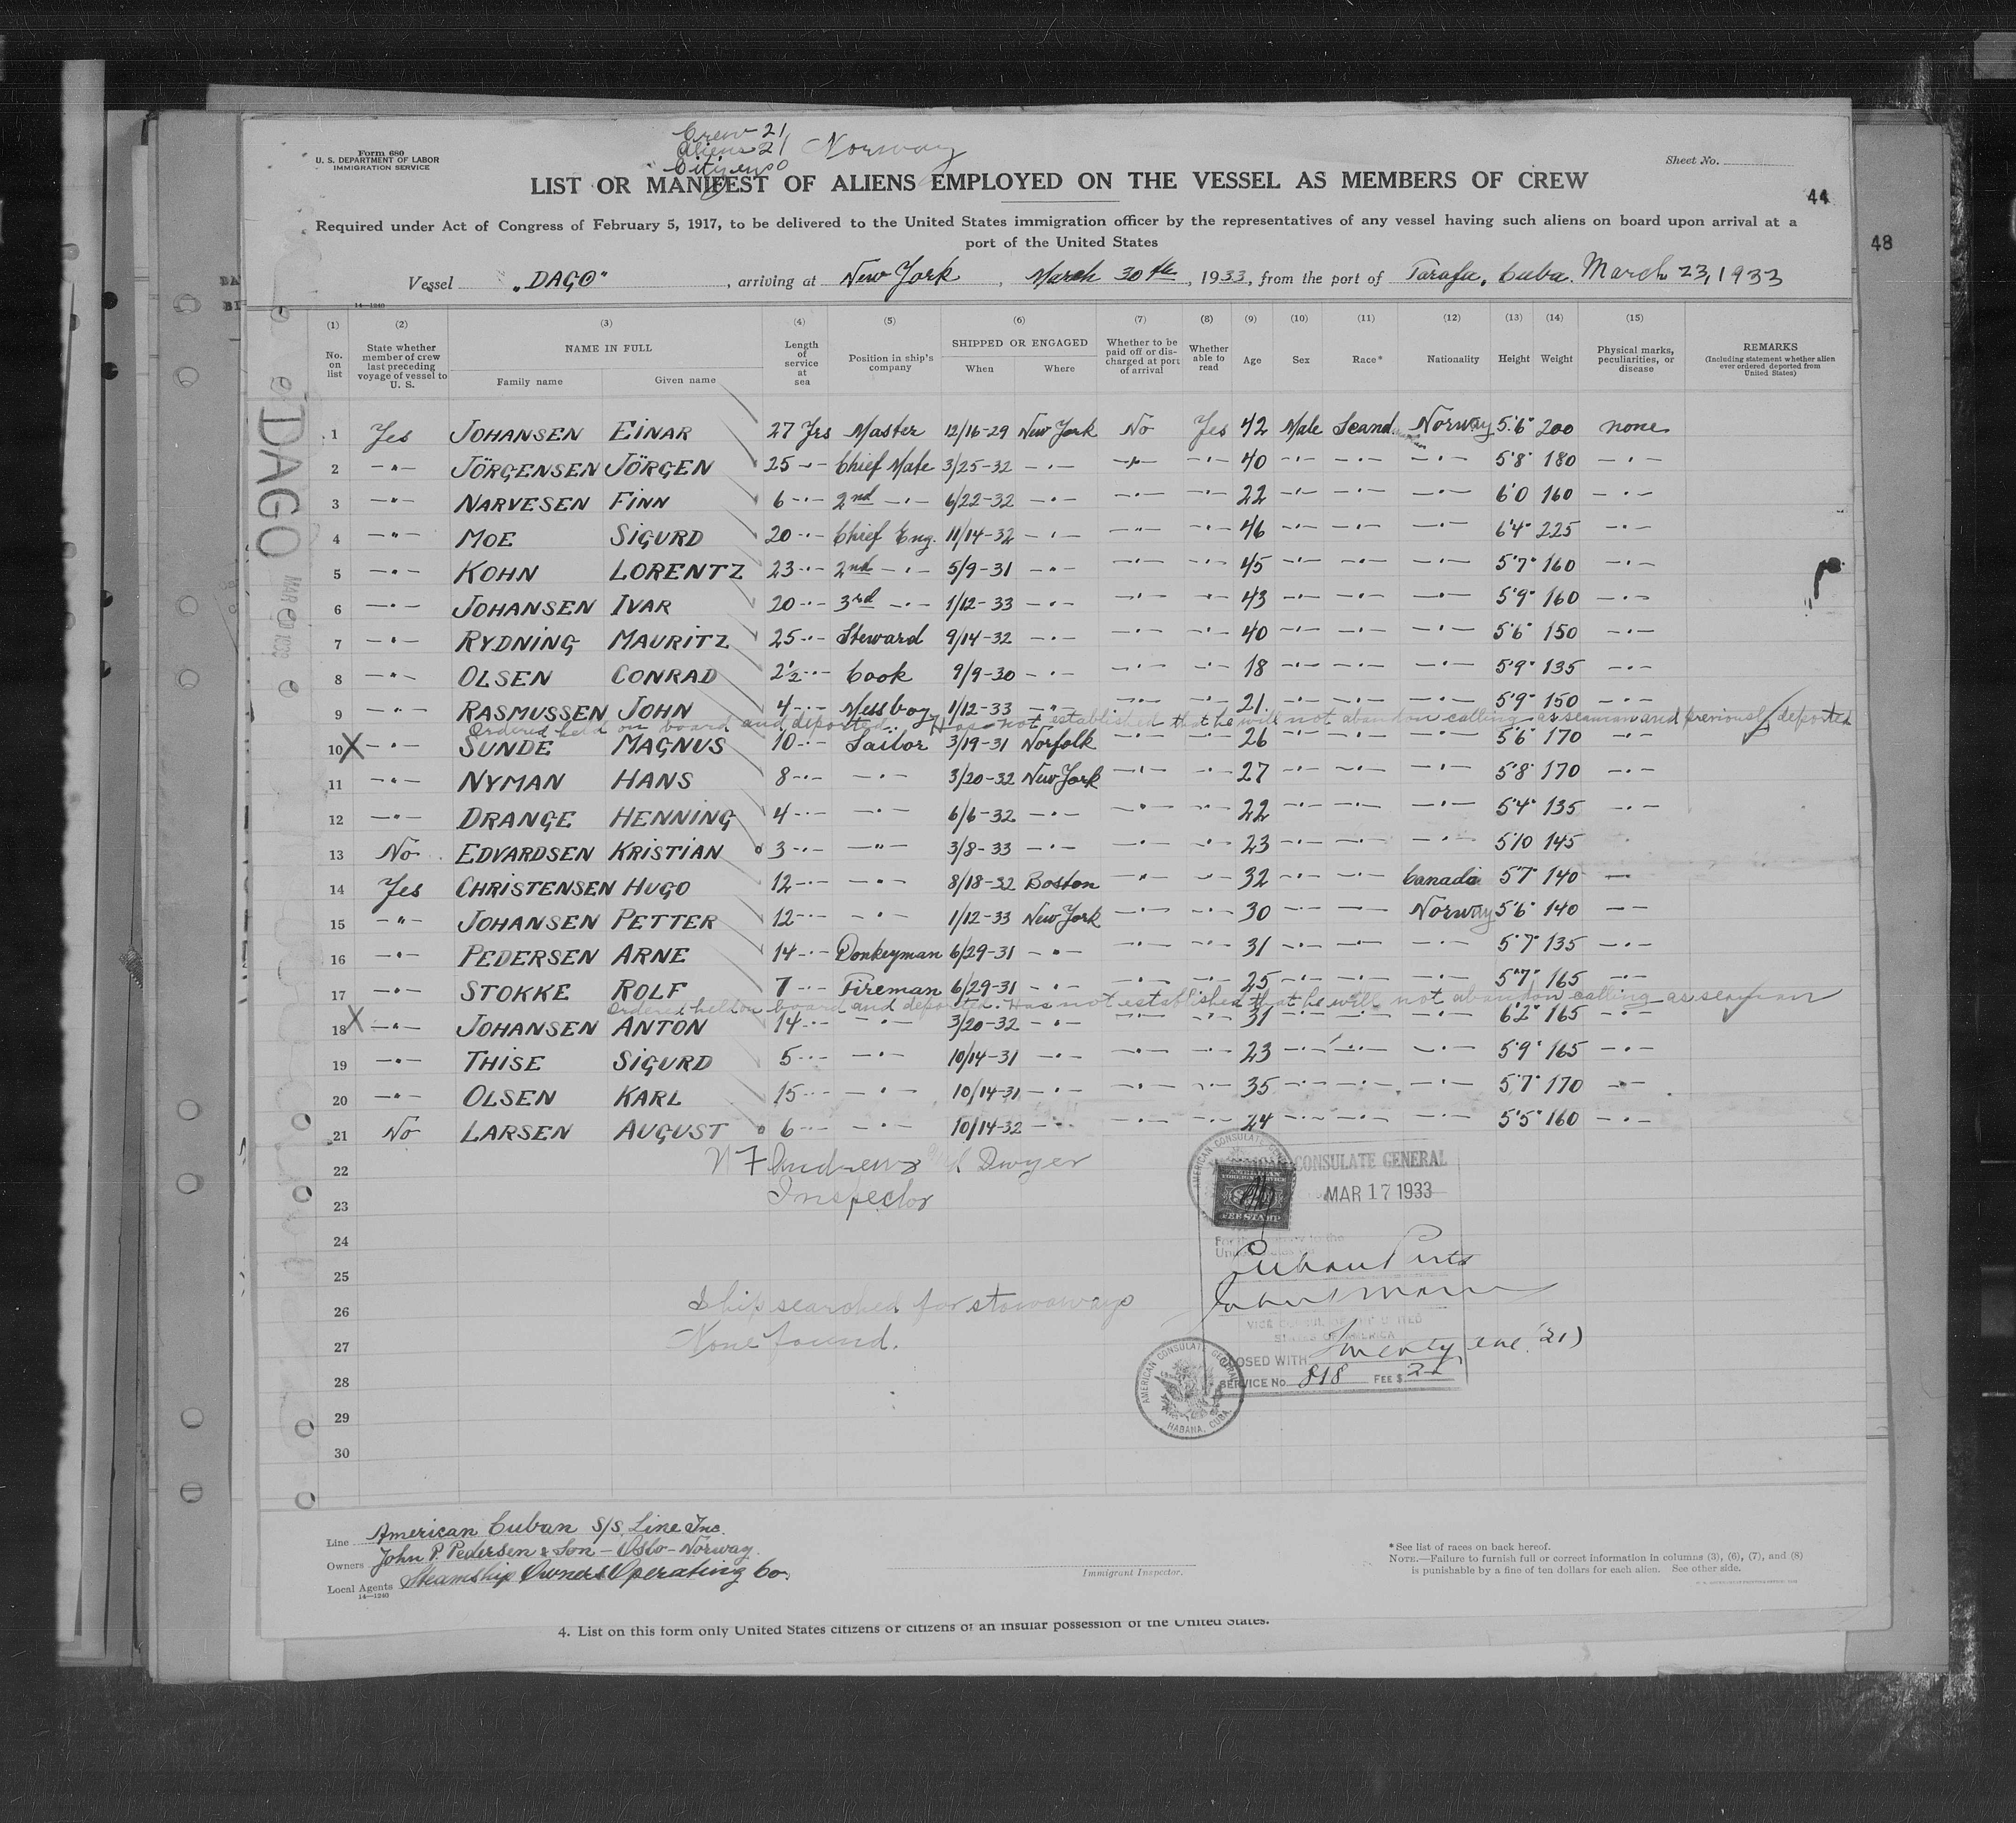 Crew 21
Aliens 21 Norway
Citizens 0
Form 680
U. S. DEPARTMENT OF LABOR
IMMIGRATION SERVICE
Sheet No.
LIST OR MANIFEST OF ALIENS EMPLOYED ON THE VESSEL AS MEMBERS OF CREW
44
48
Required under Act of Congress of February 5, 1917, to be delivered to the United States immigration officer by the representatives of any vessel having such aliens on board upon arrival at a
port of the United States
Vessel "DAGO", arriving at New York, March 30th, 1933, from the port of Tarafa, Cuba. March 23, 1933
14—1240
(1) (2) (3) (4) (5) (6) (7) (8) (9) (10) (11) (12) (13) (14) (15)
No. on list
State whether member of crew last preceding voyage of vessel to U. S.
NAME IN FULL
Family name Given name
Length of service at sea
Position in ship's company
SHIPPED OR ENGAGED
When Where
Whether to be paid off or discharged at port of arrival
Whether able to read
Age Sex Race* Nationality Height Weight
Physical marks, peculiarities, or disease
REMARKS
(Including statement whether alien ever ordered deported from United States)
DAGO
1 Yes JOHANSEN EINAR 27 Yrs Master 12/16-29 New York No Yes 42 Male Scand. Norway 5'6" 200 none
2 —"— JÖRGENSEN JÖRGEN 25 —"— Chief Mate 3/25-32 —"— —"— —"— 40 —"— —"— —"— 5'8" 180 —"—
3 —"— NARVESEN FINN 6 —"— 2nd —"— 6/22-32 —"— —"— —"— 22 —"— —"— —"— 6'0 160 —"—
4 —"— MOE SIGURD 20 —"— Chief Eng. 11/14-32 —"— —"— —"— 46 —"— —"— —"— 6'4" 225 —"—
5 —"— KOHN LORENTZ 23 —"— 2nd —"— 5/9-31 —"— —"— —"— 45 —"— —"— —"— 5'7" 160 —"—
6 —"— JOHANSEN IVAR 20 —"— 3rd —"— 1/12-33 —"— —"— —"— 43 —"— —"— —"— 5'9" 160 —"—
7 —"— RYDNING MAURITZ 25 —"— Steward 9/14-32 —"— —"— —"— 40 —"— —"— —"— 5'6" 150 —"—
8 —"— OLSEN CONRAD 2½ —"— Cook 9/9-30 —"— —"— —"— 18 —"— —"— —"— 5'9" 135 —"—
9 —"— RASMUSSEN JOHN 4 —"— Messboy 1/12-33 —"— —"— —"— 21 —"— —"— —"— 5'9" 150 —"—
Ordered held on board and deported. Has not established that he will not abandon calling as seaman and previously deported
10 X —"— SUNDE MAGNUS 10 —"— Sailor 3/19-31 Norfolk —"— —"— 26 —"— —"— —"— 5'6" 170 —"—
11 —"— NYMAN HANS 8 —"— —"— 3/20-32 New York —"— —"— 27 —"— —"— —"— 5'8" 170 —"—
12 —"— DRANGE HENNING 4 —"— —"— 6/6-32 —"— —"— —"— 22 —"— —"— —"— 5'4" 135 —"—
13 No EDVARDSEN KRISTIAN 3 —"— —"— 3/8-33 —"— —"— —"— 23 —"— —"— —"— 5'10 145
14 Yes CHRISTENSEN HUGO 12 —"— —"— 8/18-32 Boston —"— —"— 32 —"— —"— Canada 5'7" 140 —
15 —"— JOHANSEN PETTER 12 —"— —"— 1/12-33 New York —"— —"— 30 —"— —"— Norway 5'6" 140 — —
16 —"— PEDERSEN ARNE 14 —"— Donkeyman 6/29-31 —"— —"— —"— 31 —"— —"— —"— 5'7" 135 —"—
17 —"— STOKKE ROLF 7 —"— Fireman 6/29-31 —"— —"— —"— 25 —"— —"— —"— 5'7" 165 —"—
Ordered held on board and deported. Has not established that he will not abandon calling as seaman
18 X —"— JOHANSEN ANTON 14 —"— —"— 3/20-32 —"— —"— —"— 31 —"— —"— —"— 6'2" 165 —"—
19 —"— THISE SIGURD 5 —"— —"— 10/14-31 —"— —"— —"— 23 —"— —"— —"— 5'9" 165 —"—
20 —"— OLSEN KARL 15 —"— —"— 10/14-31 —"— —"— —"— 35 —"— —"— —"— 5'7" 170 —"—
21 No LARSEN AUGUST 6 —"— —"— 10/14-32 —"— —"— —"— 24 —"— —"— —"— 5'5" 160 —"—
22 Andrews Dwyer
23 Inspector
24
25
26 Ship searched for stowaways
27 None found.
28
29
30
AMERICAN CONSULATE GENERAL
MAR 17 1933
FEE STAMP
Cuban Ports
VICE CONSUL OF THE UNITED
STATES OF AMERICA
CLOSED WITH Twenty one (21)
SERVICE No. 818 FEE $ 2
AMERICAN CONSULATE GENERAL
HABANA, CUBA.
Line American Cuban S/S. Line Inc.
Owners John P. Pedersen & Son - Oslo - Norway.
Local Agents Steamship Owners Operating Co.
14—1240
Immigrant Inspector.
*See list of races on back hereof.
NOTE.—Failure to furnish full or correct information in columns (3), (6), (7), and (8)
is punishable by a fine of ten dollars for each alien. See other side.
4. List on this form only United States citizens or citizens of an insular possession of the United States.